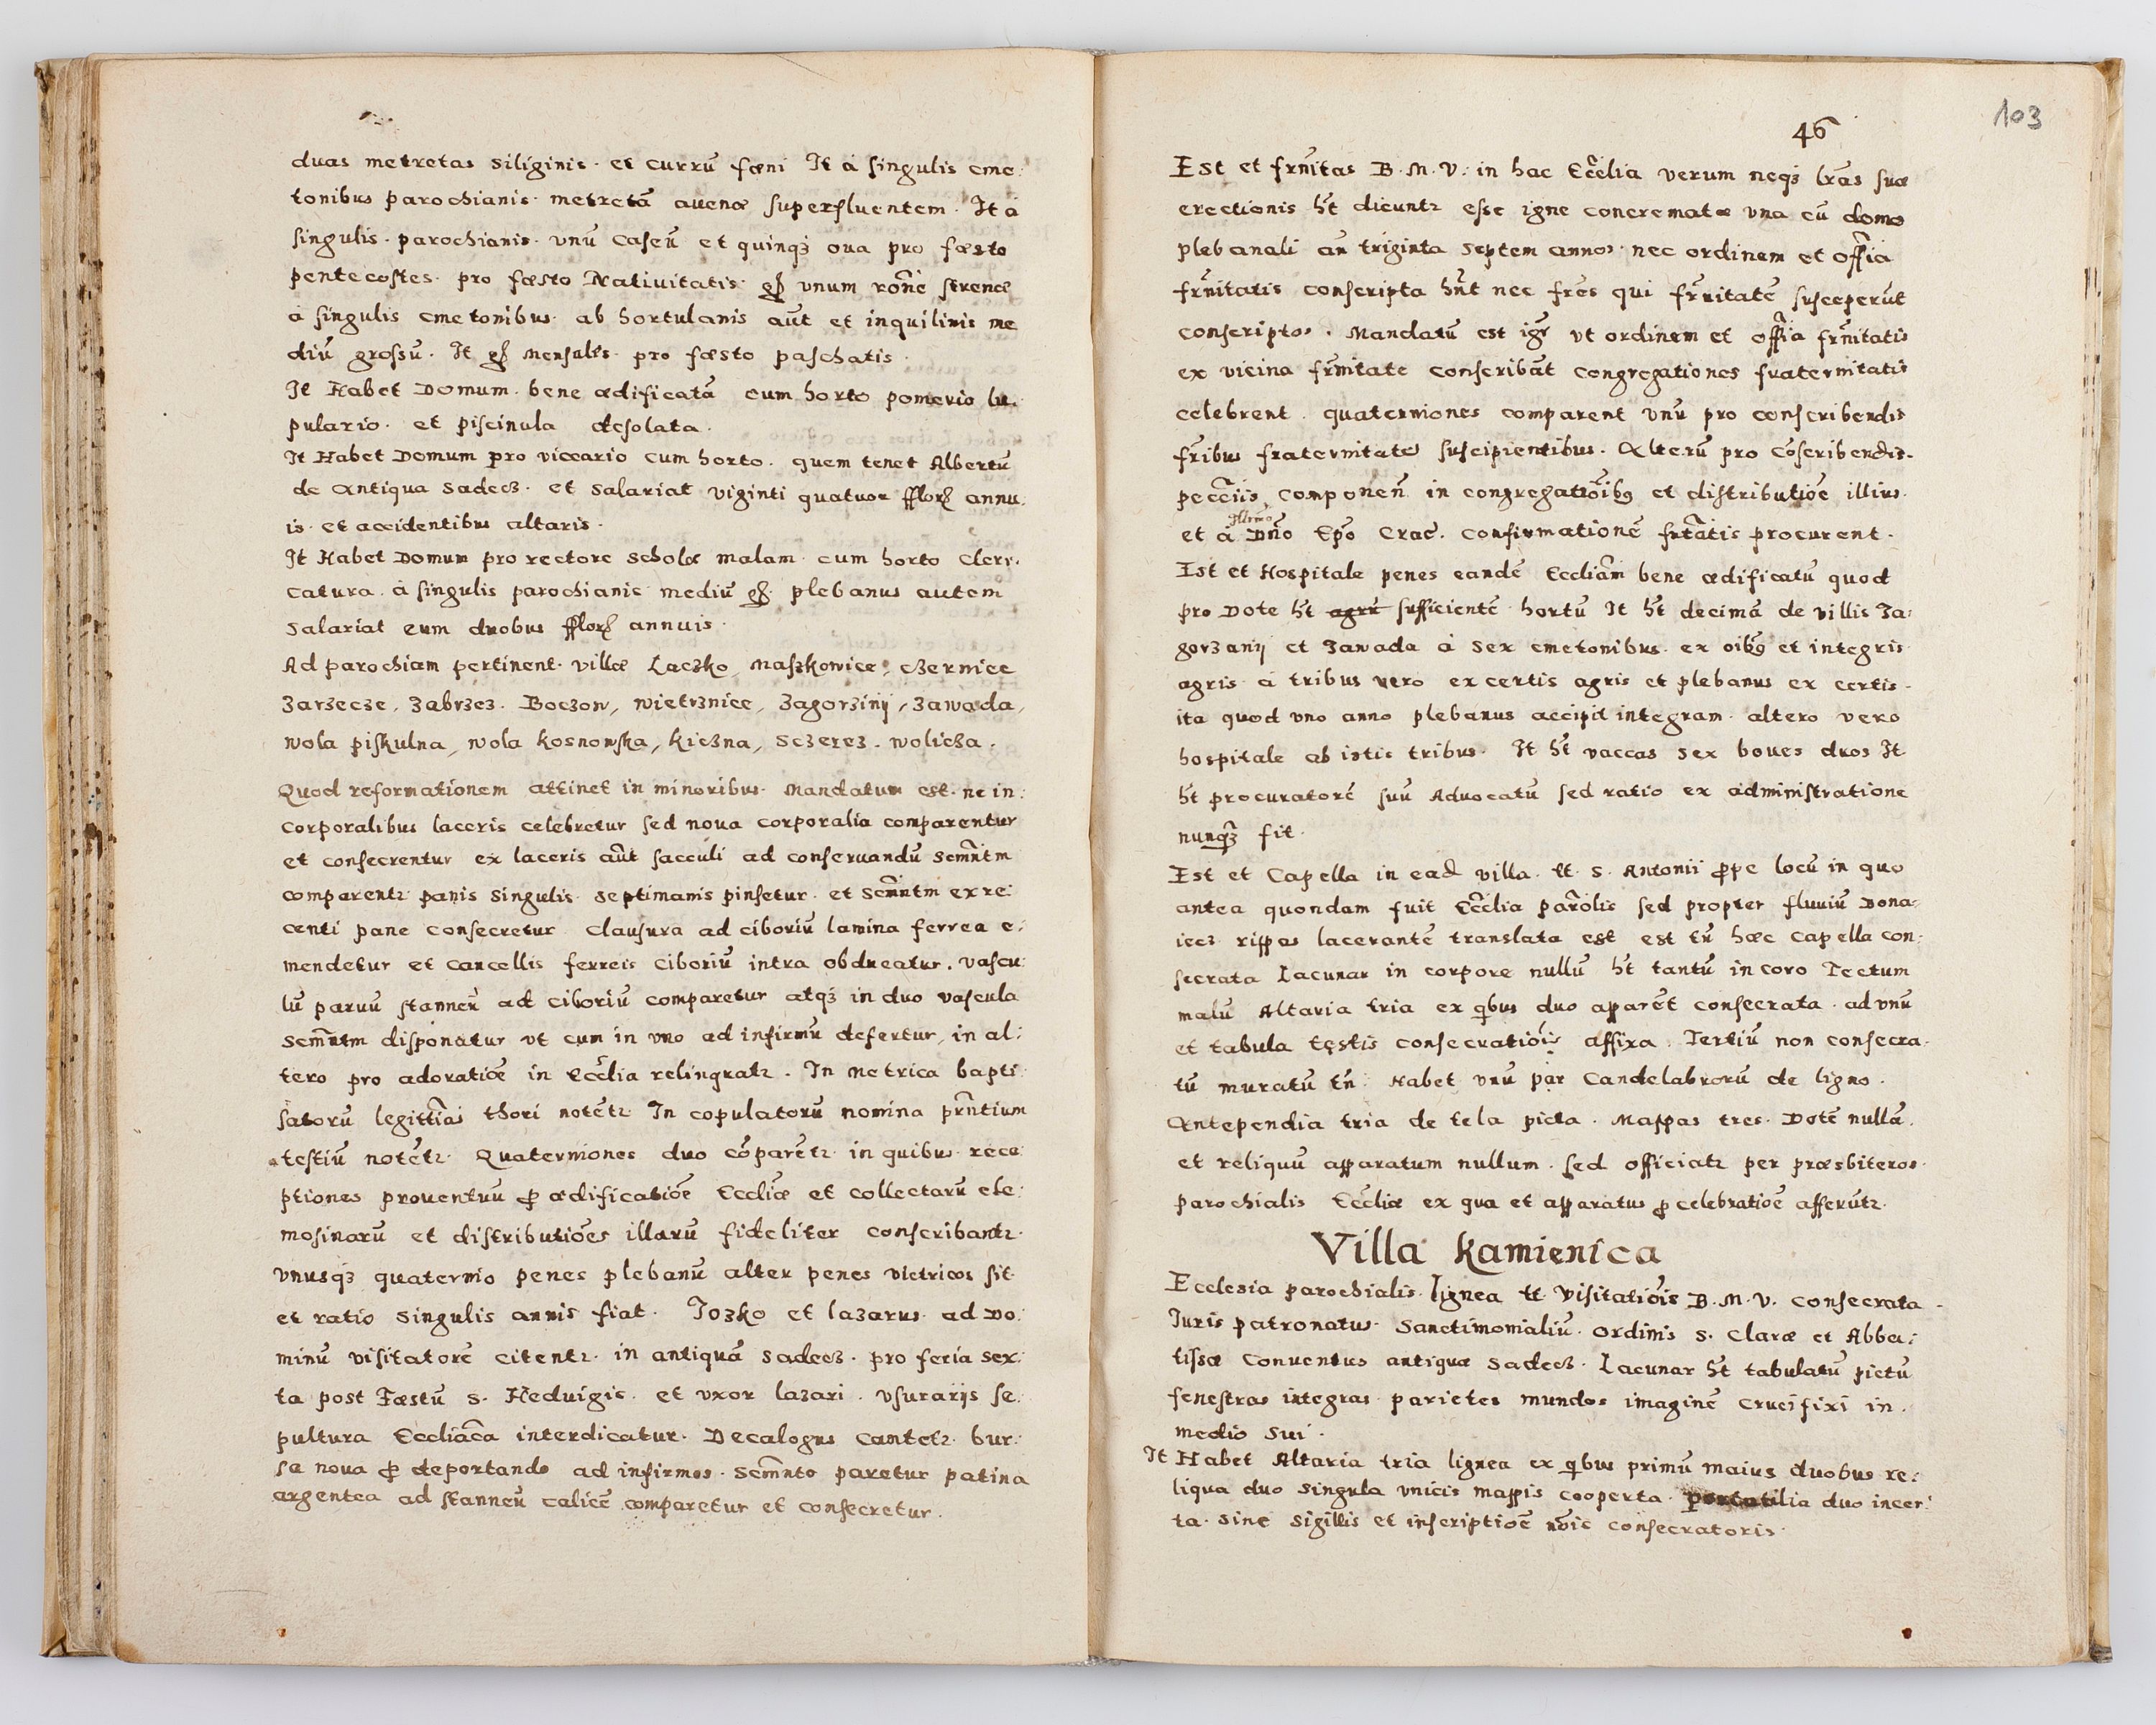 duas metretas siliginis. et currū fœni It à singulis cme:
tonibus parochianis. metretā auenæ superfluentem. It à
singulis. parochianis. vnū caseū et quinqꝫ oua pro fæsto
pentecostes. pro fæsto Natiuitatis. gꝭ vnum rone͞ strenæ
à singulis cmetonibus. ab hortulanis aūt et inquilinis me
diū grossū. It gꝭ mensales. pro fæsto paschatis.
It Habet Domum. bene ædificatā cum horto pomerio lu.
pulario. et piscinula desolata.
It Habet Domum pro viccario cum horto. quem tenet Albertū
de Antiqua Sadecz. et salariat viginti quatuor fflorꝭ annu.
is. et accidentibus altaris.
It Habet Domum pro rectore scholæ malam. cum horto Cleri.
catura. à singulis parochianis mediū gꝭ. plebanus autem
salariat eum duobus fflorꝭ annuis.
Ad parochiam pertinent. villæ Laczko, Maszkowice, Czernice
Zarzecze, Zabrzez. Boczow, Wietrznice, Zagorzinÿ, Zawada,
Wola piskulna, Wola kosnowska, Kiczna, Sczerez. Wolicza.
Quod reformationem attinet in minoribus. Mandatum est. ne in:
corporalibus laceris celebretur sed noua corporalia comparentur
et consecrentur ex laceris aūt sacculi ad conseruandū scmn̄tm
comparentꝛ panis singulis septimanis pinsetur. et scmn̄tm ex re:
centi pane consecretur clausura ad ciboriū lamina ferrea e:
mendetur et cancellis ferreis ciboriū intra obducatur. vascu:
lū paruū stanneū ad ciboriū comparetur atqꝫ in duo vascula
scmn̄tm disponatur vt cum in vno ad infirmū defertur, in al:
tero pro adoratiōe in Eccl̄ia relinqratꝛ. In metrica bapti:
satorū legittīa thori notētꝛ In copulatorū nomina prn̄tium
testiū notētꝛ. Quaterniones duo cōparētꝛ in quibus rece
ptiones prouentuū ꝓ ædificatiōe Eccl̄iæ et collectarū ele:
mosinarū et distributiōes illarū fideliter conscribantꝛ.
vnusqꝫ quaternio penes plebanū alter penes vietricos sit.
et ratio singulis annis fiat. Jozko et lazarus ad Do:
minū visitatorē citentꝛ. in antiquā Sadecz. pro feria sex:
ta post Fæstū S. Heduigis. et vxor lazari. vsurarijs se.
pultura Eccliāca interdicatur. Decalogus cantetꝛ. bur:
sa noua ꝓ deportando ad infirmos. scmn̄to paretur patina
argentea ad stanneū calicē comparetur et consecretur.
103
46
Est et frn̄itas B. M. V. in hac Eccl̄ia verum neqꝫ lrās suæ
erectionis ht̄ dicuntꝛ esse igne concrematæ vna cū domo
plebanali an̄ triginta septem annos. nec ordinem et offīa
frn̄itatis conscripta hn̄t nec frēs qui frn̄itatē susceperūt
conscriptos. Mandatū est igr̄ vt ordinem et offīa frn̄itatis
ex vicina frn̄itate conscribāt congregationes fraternitatis
celebrent. quaterniones comparent vnū pro conscribendis
frībus fraternitates suscipientibus. Alterū pro cōscribendis.
peccn̄iis componen̄ in congregatiōibꝯ et distributiōe illius.
et à Illr̄mo Dn̄o Epō Crac̄. confirmationē frtātis procurent.
Est et Hospitale penes eandē Eccliām bene ædificatū quod
pro Dote ht̄ agrū sufficientē hortū It ht̄ decimā de villis Za:
gorzanÿ et Zawada à sex cmetonibus. ex oībꝯ et integris
agris à tribus vero ex certis agris et plebanus ex certis.
ita quod vno anno plebanus accipit integram. altero vero
hospitale ab istis tribus. It ht̄ vaccas sex boues duos It
ht̄ procuratorē suū Aduocatū sed ratio ex administratione
nunqꝫ fit.
Est et Capella in ead̄ villa. tt. S. Antonii ꝓpe locū in quo
antea quondam fuit Eccl̄ia parōlis sed propter fluuiū Dona:
iecz rippas lacerantē translata est est tn̄ hæc capella con:
secrata Lacunar in corpore nullū ht̄ tantū in coro Tectum
malū Altaria tria ex qbus duo apparēt consecrata. ad vnū
et tabula testis consecratiōis affixa. Tertiū non consecra.
tū muratū tn̄. Habet vnū par candelabrorū de ligno.
Antependia tria de tela picta. Mappas tres. Dotē nullā.
et reliquū apparatum nullum. sed officiatꝛ per præsbiteros.
parochialis Eccl̄iæ ex qua et apparatus ꝓ celebratiōe afferūtꝛ.
Villa Kamienica
Ecclesia parochialis. lignea tt. Visitatiōis B. M. V. consecrata.
Juris patronatus. Sanctimonialiū. ordinis S. Claræ et Abba:
tissæ Conuentus antiquæ Sadecz. Lacunar ht̄ tabulatū pictū
fenestras integras parietes mundos imaginē crucifixi in.
medio sui.
It Habet Altaria tria lignea ex qbus primū maius duobus re:
liqua duo singula vnicis mappis cooperta. portatilia duo incer:
ta. sine sigillis et inscriptiōe nōis consecratoris.